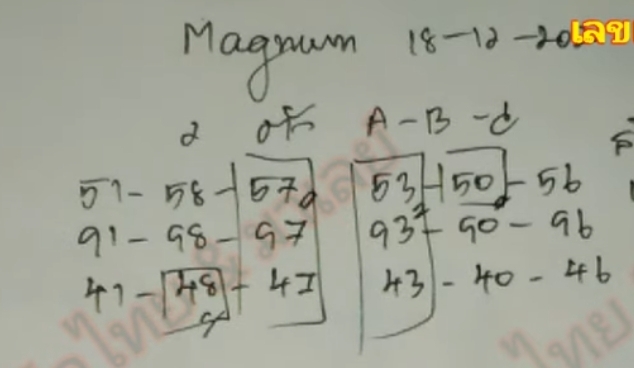 Magnum 18-12-20
เลข
2 A-B-C
51-58-57 53-50-56
91-98-97 93-90-96
41-48-47 43-40-46